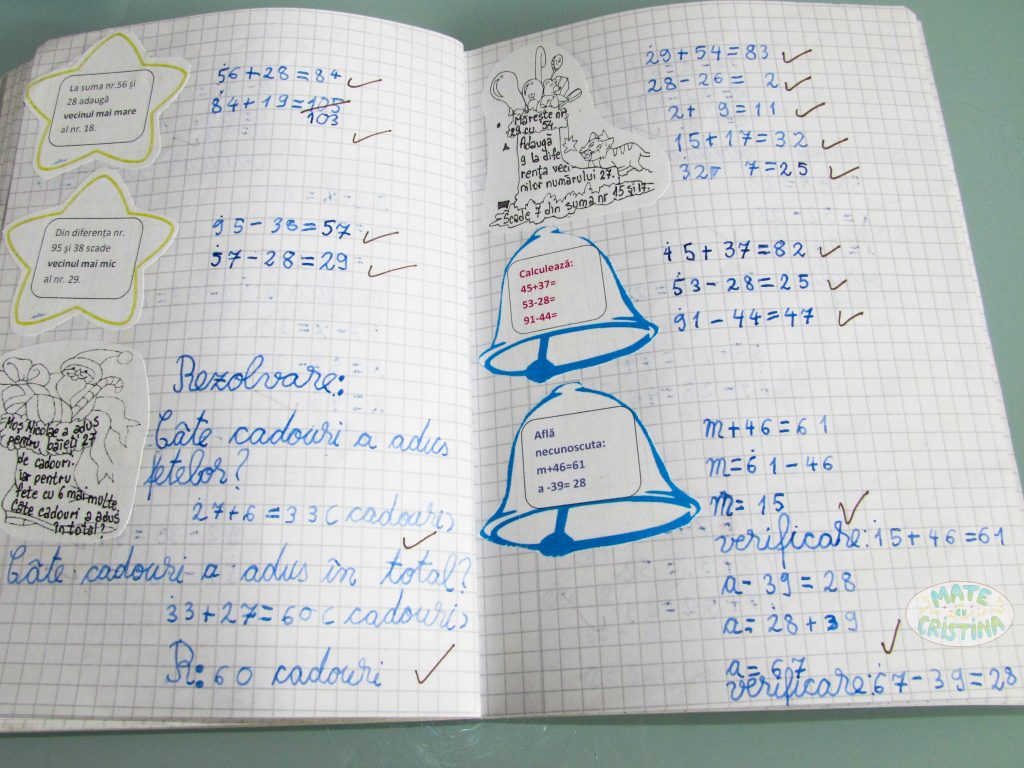 La suma nr.56 și
28 adaugă
vecinul mai mare
al nr. 18.
56+28=84
84+19=125
103
Din diferența nr.
95 și 38 scade
vecinul mai mic
al nr. 29.
95-38=57
57-28=29
Moș Nicolae a adus
pentru băieți 27
de cadouri.
iar pentru
fete cu 6 mai multe.
Câte cadouri a adus
în total?
Rezolvare:
Câte cadouri a adus
fetelor?
27+6=33(cadouri)
Câte cadouri a adus în total?
33+27=60(cadouri)
R: 60 cadouri
Mărește nr.
29 cu 54.
Adaugă
9 la dife
rența veci
nilor numărului 27.
Scade 7 din suma nr 15 și 17.
29+54=83
28-26= 2
2+ 9=11
15+17=32
32- 7=25
Calculează:
45+37=
53-28=
91-44=
45+37=82
53-28=25
91-44=47
Află
necunoscuta:
m+46=61
a -39= 28
m+46=61
m=61-46
m=15
verificare:15+46=61
a-39=28
a=28+39
a=67
verificare:67-39=28
MATE
cu
CRISTINA